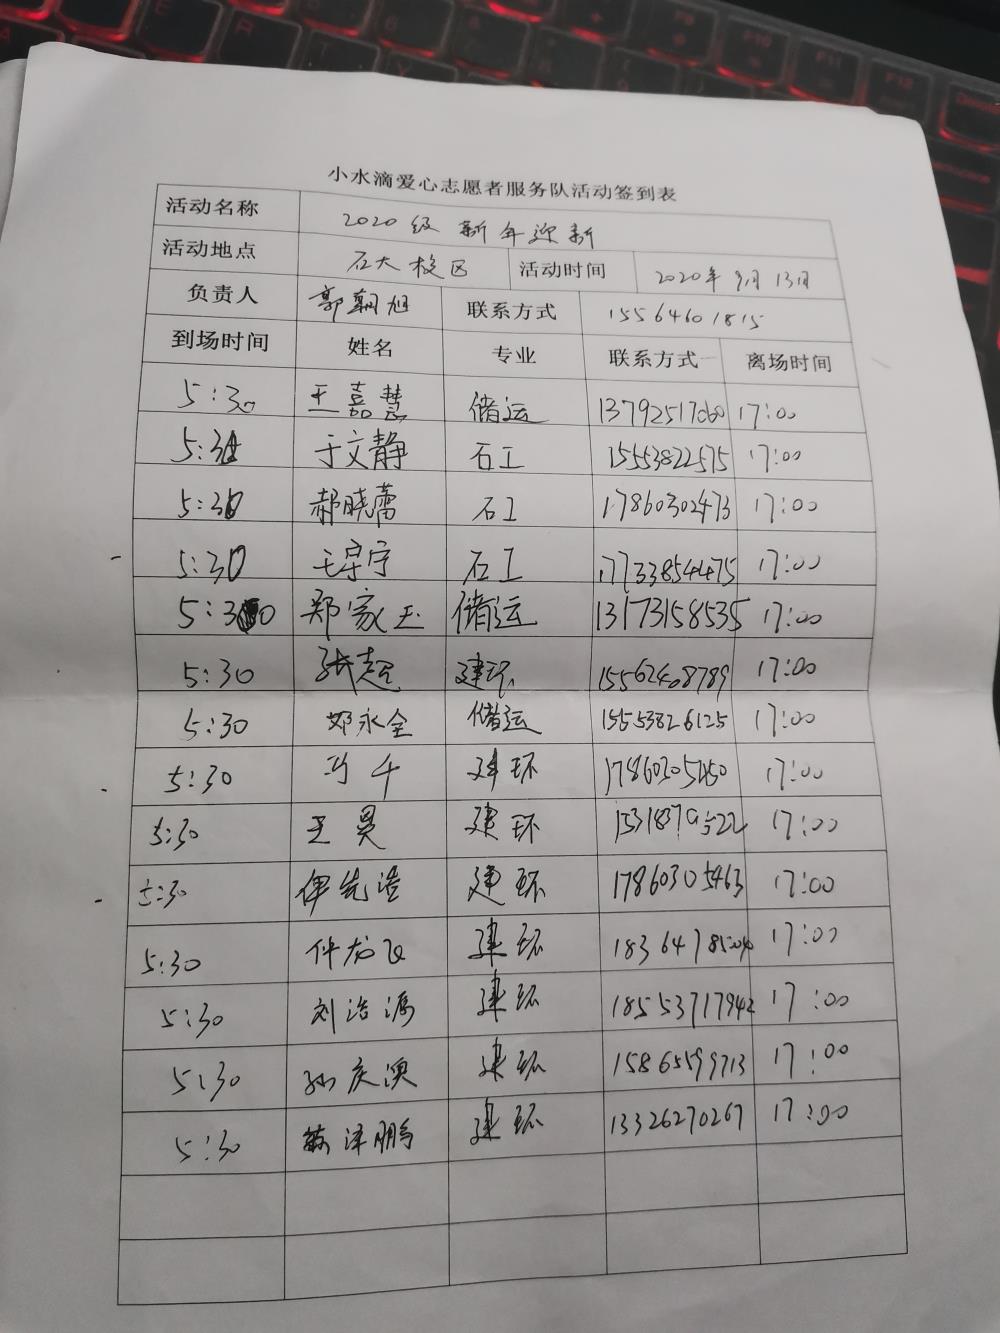 小水滴爱心志愿者服务队活动签到表
活动名称 2020级 新年迎新
活动地点 石大校区 活动时间 2020年9月13日
负责人 郭朝旭 联系方式 15564601815
到场时间 姓名 专业 联系方式 离场时间
5:30 王嘉慧 储运 13792517060 17:00
5:30 于文静 石工 15553822575 17:00
5:30 郝晓蕾 石工 17860302473 17:00
5:30 王宇宁 石工 17733854475 17:00
5:30 郑家玉 储运 13173158535 17:00
5:30 张超 建环 15562408789 17:00
5:30 邓永全 储运 15553826125 17:00
5:30 马千 建环 17:00
5:30 王昊 建环 17:00
5:30 伊先浩 建环 17860305463 17:00
5:30 仵龙飞 建环 17:00
5:30 刘治源 建环 18553717942 17:00
5:30 孙庆澳 建环 15865599713 17:00
5:30 苏泽鹏 建环 13326270267 17:00